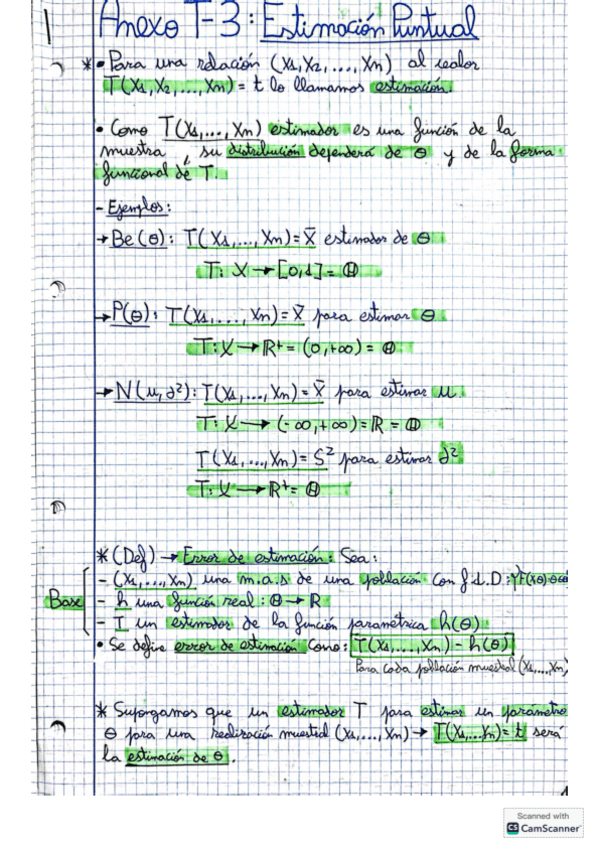 1 Anexo T-3: Estimación Puntual
* • Para una relación (X1, X2, ..., Xn) al
T(X1, X2, ..., Xn) = t lo llamamos estimación.
• Como T(X1, ..., Xn) estimador es una función de la
muestra, su distribución dependerá de θ y de la forma
funcional de T.
- Ejemplos:
→ Be(θ): T(X1, ..., Xn) = X̄ estimador de θ
T: X → [0,1] = Θ
→ P(θ): T(X1, ..., Xn) = X̄ para estimar θ
T: X → R+ = (0,+∞) = Θ
→ N(μ, σ²): T(X1, ..., Xn) = X̄ para estimar μ.
T: X → (-∞,+∞) = R = Θ
T(X1, ..., Xn) = S² para estimar σ²
T: X → R+ = Θ
* (Def) → Error de estimación: Sea:
- (X1, ..., Xn) una m.a.s de una población con f.d.D:
Base - h una función real: Θ → R
- T un estimador de la función paramétrica h(θ)
• Se define error de estimación como: T(X1, ..., Xn) - h(θ)
Para cada población muestral (X1, ..., Xn)
* Supongamos que un estimador T para estimar un parametro
θ para una realización muestral (X1, ..., Xn) → T(X1, ..., Xn) = t será
la estimación de θ.
Scanned with
CS CamScanner